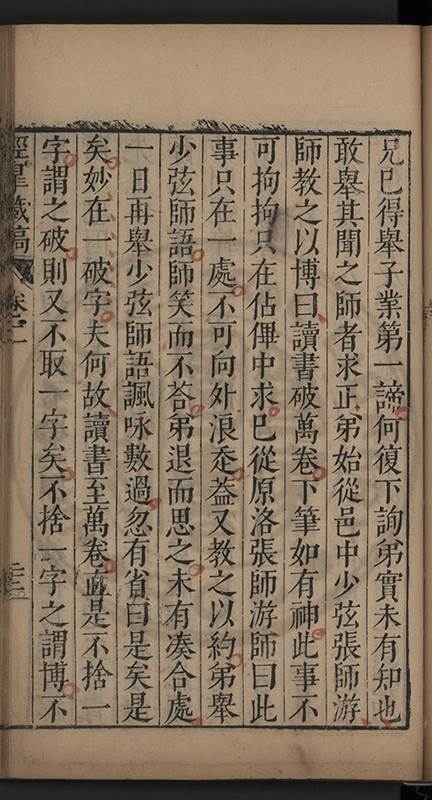 兄已得舉子業第一諦何復下詢弟實未有知也
敢舉其聞之師者求正弟始從邑中少弦張師游
師教之以博曰讀書破萬卷下筆如有神此事不
可拘拘只在佔俾中求已從原洛張師游師曰此
事只在一處不可向外浪走益又教之以約弟舉
少弦師語師笑而不荅弟退而思之未有凑合處
一日再舉少弦師語諷咏數過忽有省曰是矣是
矣妙在一破字夫何故讀書至萬卷直是不捨一
字謂之破則又不取一字矣不捨一字之謂博不
卷二
二三